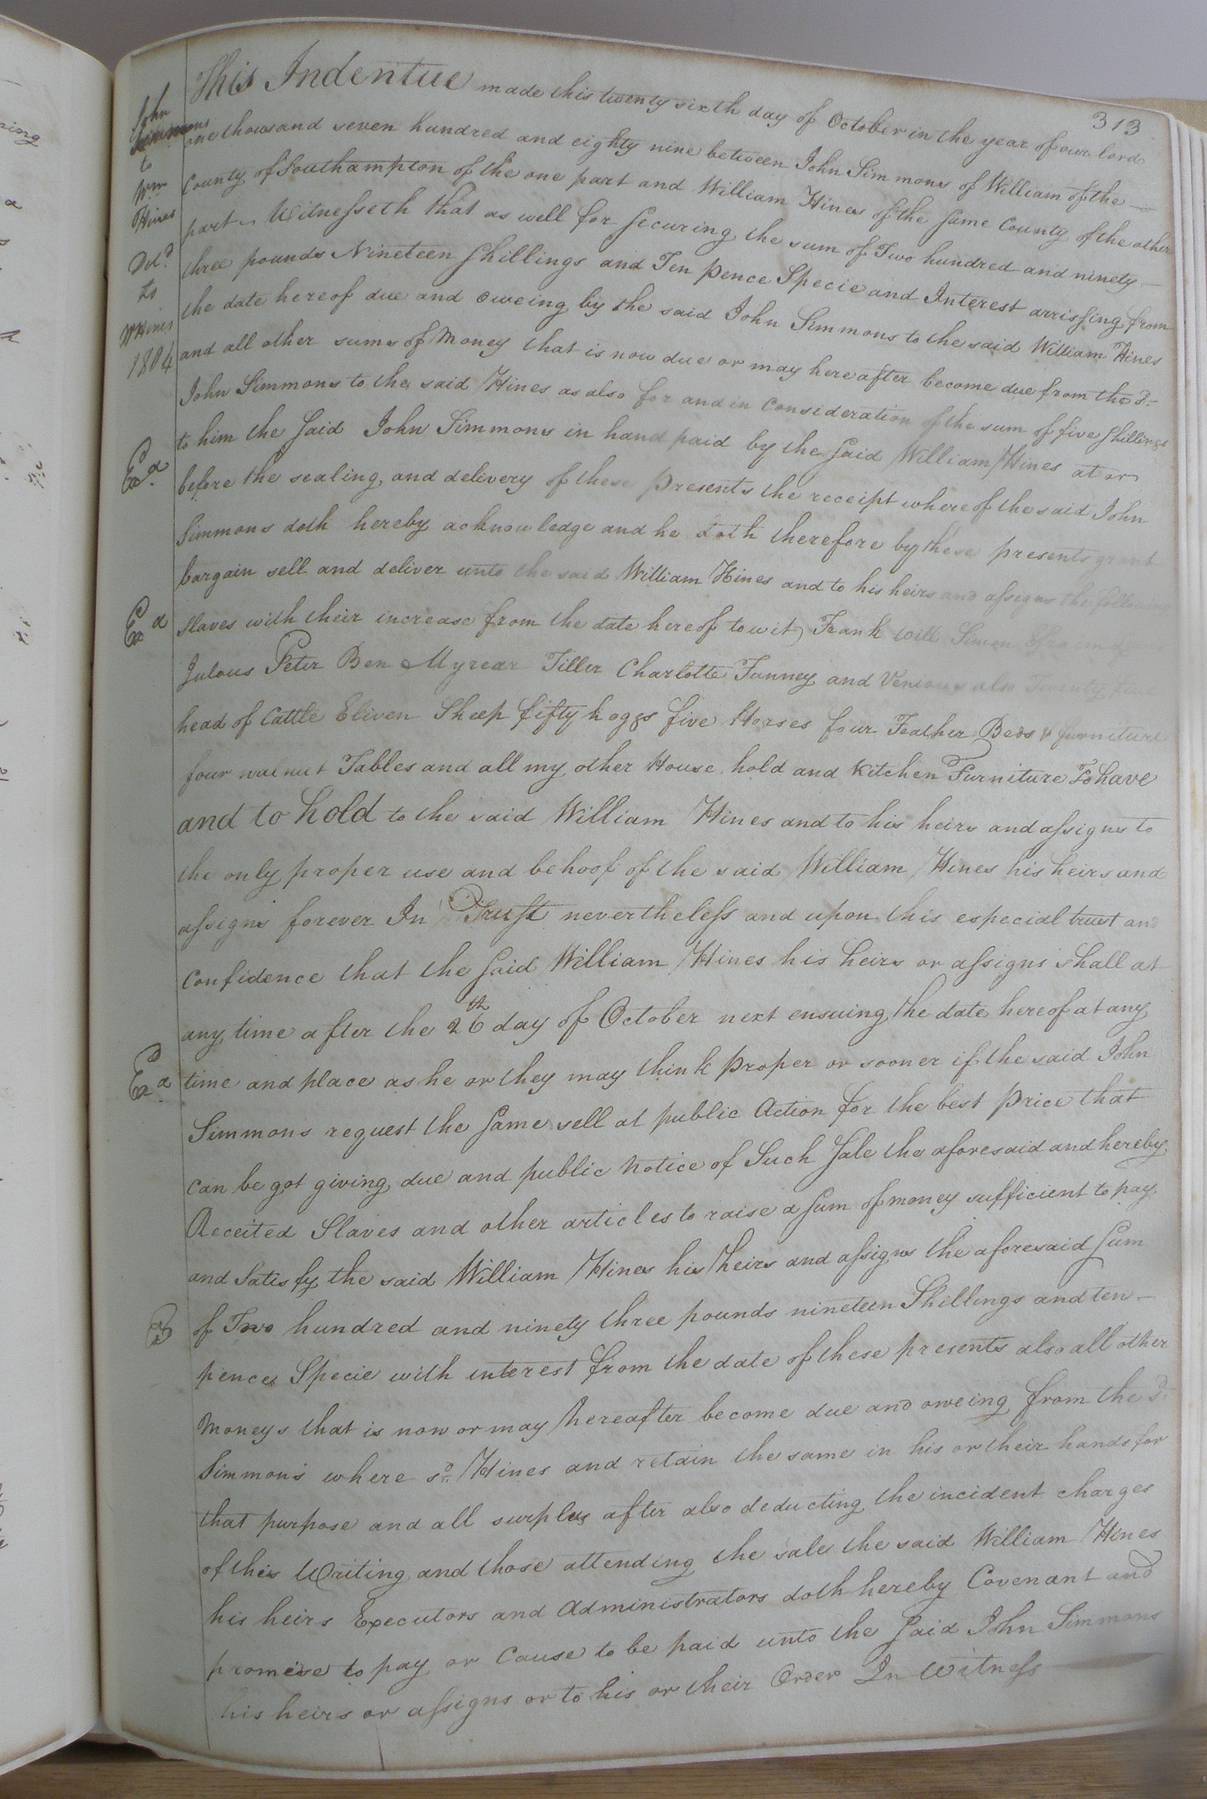 313
John
Simmons
to
Wm
Hines
Deld
to
W Hines
1804
Exd
Exd
Exd
This Indentue made this twenty sixth day of October in the year of our lord
one thousand seven hundred and eighty nine between John Simmons of William of the
County of Southampton of the one part and William Hines of the same County of the other
part Witnesseth that as well for securing the sum of Two hundred and ninety
three pounds Nineteen Shillings and Ten pence Specie and Interest arrissing from
the date hereof due and oweing by the said John Simmons to the said William Hines
and all other sums of Money that is now due or may hereafter become due from the sd
John Simmons to the said Hines as also for and in Consideration of the sum of five Shillings
to him the said John Simmons in hand paid by the said William Hines at or
before the sealing and delivery of these presents the receipt whereof the said John
Simmons doth hereby acknowledge and he doth therefore by these presents grant
bargain sell and deliver unto the said William Hines and to his heirs and assigns the following
slaves with their increase from the date hereof towit Frank Will Simon
Julous Peter Ben Myrear Tiller Charlotte Fanney and also Twenty
head of Cattle Eliven Sheep fifty hoggs five Horses four Feather Beds & furniture
four walnut Tables and all my other House hold and Kitchen Furniture To have
and to hold to the said William Hines and to his heirs and assigns to
the only proper use and behoof of the said William Hines his heirs and
assigns forever In Trust nevertheless and upon this especial trust and
Confidence that the said William Hines his heirs or assigns shall at
any time after the 26th day of October next ensuing the date hereof at any
time and place as he or they may think proper or sooner if the said John
Simmons request the same sell at public Action for the best price that
can be got giving due and public Notice of Such Sale the aforesaid and hereby
Receited Slaves and other articles to raise a sum of money sufficient to pay
and Satisfy the said William Hines his heirs and assigns the aforesaid sum
of Two hundred and ninety three pounds nineteen Shillings and ten
pence Specie with interest from the date of these presents also all other
Moneys that is now or may hereafter become due and oweing from the sd
Simmons where sd Hines and retain the same in his or their hands for
that purpose and all surplus after also deducting the incident charges
of this Writing and those attending the sale the said William Hines
his heirs Executors and Administrators doth hereby Covenant and
promise to pay or Cause to be paid unto the said John Simmons
his heirs or assigns or to his or their Order In Witness